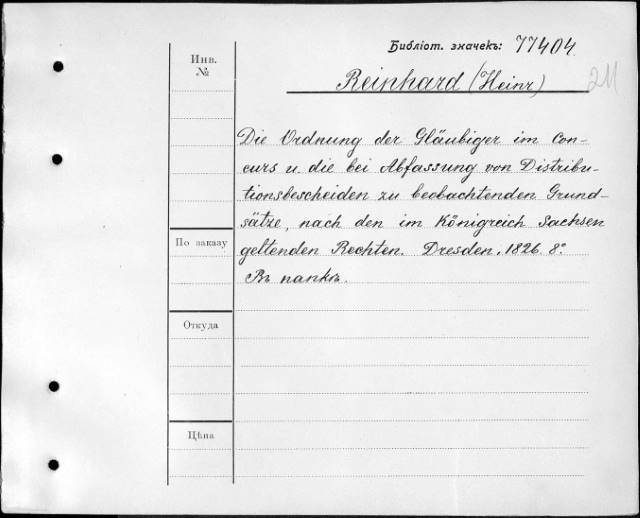 Библіот. значекъ: 77404.
211
Инв.
№
Reinhard (Heinr)
Die Ordnung der Gläubiger im Con-
curs u. die bei Abfassung von Distribu-
tionsbescheiden zu beobachtenden Grund-
sätze, nach den im Königreich Sachsen
По заказу
geltenden Rechten. Dresden. 1826. 8°.
Въ папкѣ.
Откуда
Цѣна